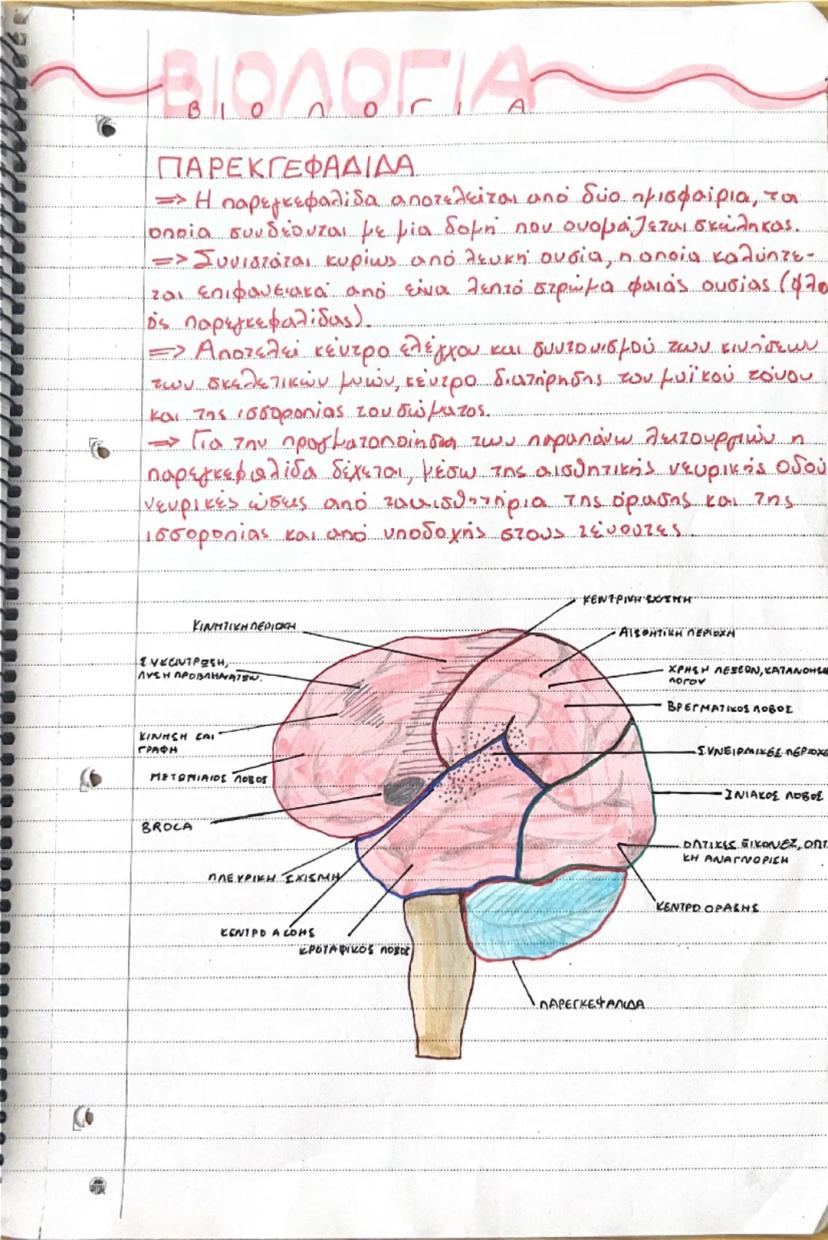 ΒΙΟΛΟΓΙΑ
ΒΙΟΛΟΓΙΑ
ΠΑΡΕΚΓΕΦΑΔΙΔΑ
=> Η παρεγκεφαλίδα αποτελείται από δύο ημισφαίρια, τα
οποία συνδέονται με μία δομή που ονομάζεται σκώληκας.
=> Συνιστάται κυρίως από λευκή ουσία, η οποία καλύπτε-
ται επιφανειακά από είνα λεπτό στρώμα φαιάς ουσίας (φλο
ός παρεγκεφαλίδας).
=> Αποτελεί κέντρο ελέγχου και συντονισμού των κινήσεων
των σκελετικών μυών, κέντρο διατήρησης του μυϊκού τόνου
και της ισσοροπίας του σώματος.
=> Για την πραγματοποίηση των παραπάνω λειτουργιών η
παρεγκεφαλίδα δέχεται, μέσω της αισθητικής νευρικής οδού
νευρικές ώσεις από τα αισθητήρια της όρασης και της
ισσοροπίας και από υποδοχής στους τένοντες.
ΚΕΝΤΡΙΚΗ ΣΧΙΣΜΗ
ΚΙΝΗΤΙΚΗ ΠΕΡΙΟΧΗ
ΑΙΣΘΗΤΙΚΗ ΠΕΡΙΟΧΗ
ΣΥΚΕΝΤΡΩΣΗ,
ΛΥΣΗ ΠΡΟΒΛΗΜΑΤΩΝ.
ΧΡΗΣΗ ΛΕΞΕΩΝ, ΚΑΤΑΝΟΗΣΗ
ΛΟΓΟΥ
ΒΡΕΓΜΑΤΙΚΟΣ ΛΟΒΟΣ
ΚΙΝΗΣΗ ΚΑΙ
ΓΡΑΦΗ
ΣΥΝΕΙΡΜΙΚΕΣ ΠΕΡΙΟΧΕ
ΜΕΤΩΠΙΑΙΟΣ ΛΟΒΟΣ
ΙΝΙΑΚΟΣ ΛΟΒΟΣ
BROCA
ΟΠΤΙΚΕΣ ΕΙΚΟΝΕΣ, ΟΠΤ
ΚΗ ΑΝΑΓΝΟΡΙΣΗ
ΠΛΕΥΡΙΚΗ ΣΧΙΣΜΗ
ΚΕΝΤΡΟ ΟΡΑΣΗΣ
ΚΕΝΤΡΟ ΑΚΟΗΣ
ΚΡΟΤΑΦΙΚΟΣ ΛΟΒΟΣ
ΠΑΡΕΓΚΕΦΑΛΙΔΑ